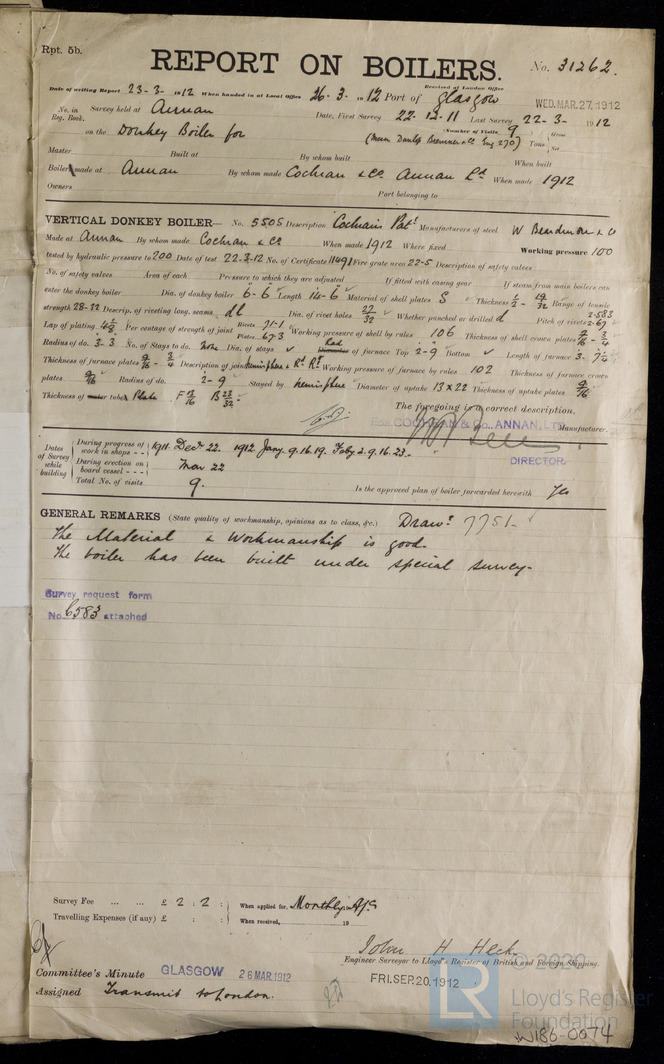 Rpt. 5b.
REPORT ON BOILERS.
No. 31262.
Date of writing Report 23-3-1912 When handed in at Local Office 26-3-1912 Port of Glasgow
Received at London Office
WED. MAR. 27. 1912
No. in Reg. Book. Survey held at Annan Date, First Survey 22-12-11 Last Survey 22-3-1912
on the Donkey Boiler for (Messrs Dunlop Bremner & Co Eng 270) Number of Visits 9 Gross Tons Net
Master Built at By whom built When built
Boiler made at Annan By whom made Cochran & Co. Annan Ld When made 1912
Owners Port belonging to
VERTICAL DONKEY BOILER— No. 5505 Description Cochran's Pat. Manufacturers of steel W Beardmore & Co
Made at Annan By whom made Cochran & Co When made 1912 Where fixed Working pressure 100
tested by hydraulic pressure to 200 Date of test 22-3-12 No. of Certificate 11491 Fire grate area 22-5 Description of safety valves
No. of safety valves Area of each Pressure to which they are adjusted If fitted with easing gear If steam from main boilers can
enter the donkey boiler Dia. of donkey boiler 6-6 Length 14-6 Material of shell plates S Thickness 1/2 - 19/32 Range of tensile
strength 28-32 Descrip. of riveting long. seams dl Dia. of rivet holes 27/32 Whether punched or drilled d Pitch of rivets 2.583 2.67
Lap of plating Per centage of strength of joint Rivets 71-1 Plates 67-3 Working pressure of shell by rules 106 Thickness of shell crown plates 9/16 - 3/4
Radius of do. 3-3 No. of Stays to do. None Dia. of stays ✓ Rad of furnace Top 2-9 Bottom ✓ Length of furnace 3-7½
Thickness of furnace plates 9/16 - 3/4 Description of joint hemisphere & Rd Rt Working pressure of furnace by rules 102 Thickness of furnace crown
plates 9/16 Radius of do. 2-9 Stayed by hemisphere Diameter of uptake 13 x 22 Thickness of uptake plates 9/16
Thickness of water tubes Plate F 13/16 B 23/32
The foregoing is a correct description,
FOR COCHRAN & Co., ANNAN, LTD. Manufacturer.
DIRECTOR
Dates of Survey while building
During progress of work in shops - - 1911 Dec 22. 1912 Jany. 9.16.19. Feby 2.9.16.23-
During erection on board vessel - - - Mar 22
Total No. of visits 9.
Is the approved plan of boiler forwarded herewith Yes
GENERAL REMARKS (State quality of workmanship, opinions as to class, &c.) Drawg 7751-
The Material & Workmanship is good.
The boiler has been built under special survey-
Survey request form
No. 6583 attached
Survey Fee ... ... £ 2 : 2 : When applied for, Monthly A/c
Travelling Expenses (if any) £ : : When received, 19
John H Heck.
Engineer Surveyor to Lloyd's Register of British and Foreign Shipping.
Committee's Minute GLASGOW 26 MAR. 1912
FRI. SEP. 20. 1912
Assigned Transmit to London.
© 2020
LR
Lloyd's Register
Foundation
W186-0074